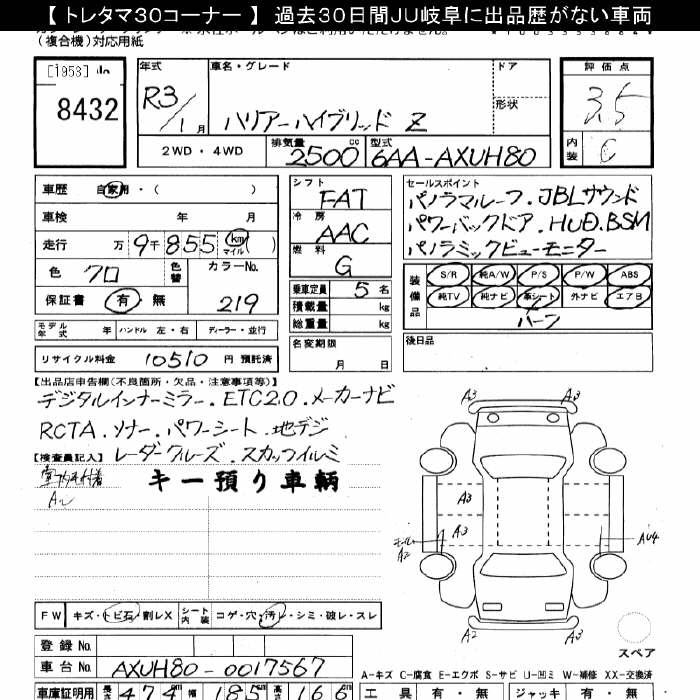 【 トレタマ30コーナー 】 過去30日間JU岐阜に出品歴がない車両
(複合機)対応用紙
[1953]
8432
年式
R3/1月
車名・グレード
ハリアーハイブリッド Z
ドア
形状
評価点
3.5
内装
C
2WD・4WD
排気量
2500cc
型式
6AA-AXUH80
車歴 自家用・( )
車検 年 月
走行 万 9千855 km マイル ( )
色 クロ
色替
カラーNo.
219
保証書 有・無
モデル年式 年
ハンドル 左・右
ディーラー・並行
リサイクル料金 10510 円 預託済
シフト
FAT
冷房
AAC
燃料
G
乗車定員 5 名
積載量 kg
総重量 kg
名変期限
月 日
セールスポイント
パノラマルーフ.JBLサウンド
パワーバックドア.HUD.BSM
パノラミックビューモニター
装備品
S/R 純A/W P/S P/W ABS
純TV 純ナビ 革シート 外ナビ エアB
ハーフ
後日品
【出品店申告欄(不良箇所・欠品・注意事項等)】
デジタルインナーミラー.ETC2.0.メーカーナビ
RCTA.ソナー.パワーシート.地デジ
レーダークルーズ.スカッフイルミ
【検査員記入】
キー預り車輌
A3
A3
A3
A3
A2
AU4
A2
A3
スペア
FW キズ・トビ石・割レX
シート内装 コゲ・穴・汚レ・シミ・破レ・スレ
登録No.
車台No. AXUH80-0017567
A-キズ C-腐食 E-エクボ S-サビ U-凹ミ W-補修 XX-交換済
車庫証明用 長さ 474 幅 185 高さ 166
工具 有・無
ジャッキ 有・無